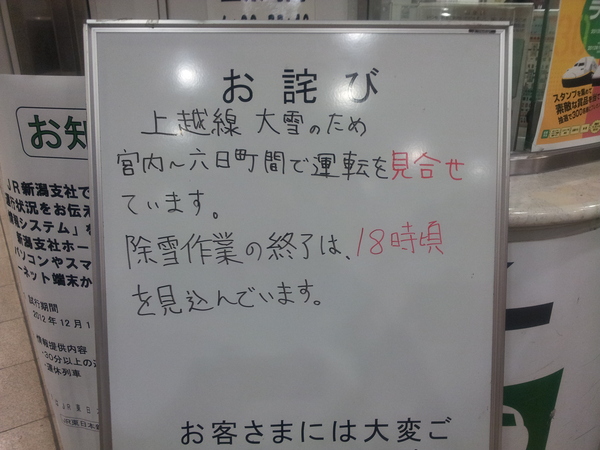 お詫び
上越線 大雪のため
宮内～六日町間で運転を見合せ
ています。
除雪作業の終了は、18時頃
を見込んでいます。
お客さまには大変ご
お知
JR新潟支社で
行状況をお伝え
情報システム」を
新潟支社ホー
パソコンやスマ
ーネット端末か
試行期間
2012年12月1
情報提供内容
・30分以上の
・運休列車
スタンプを集めて
素敵な賞品を
抽選で300